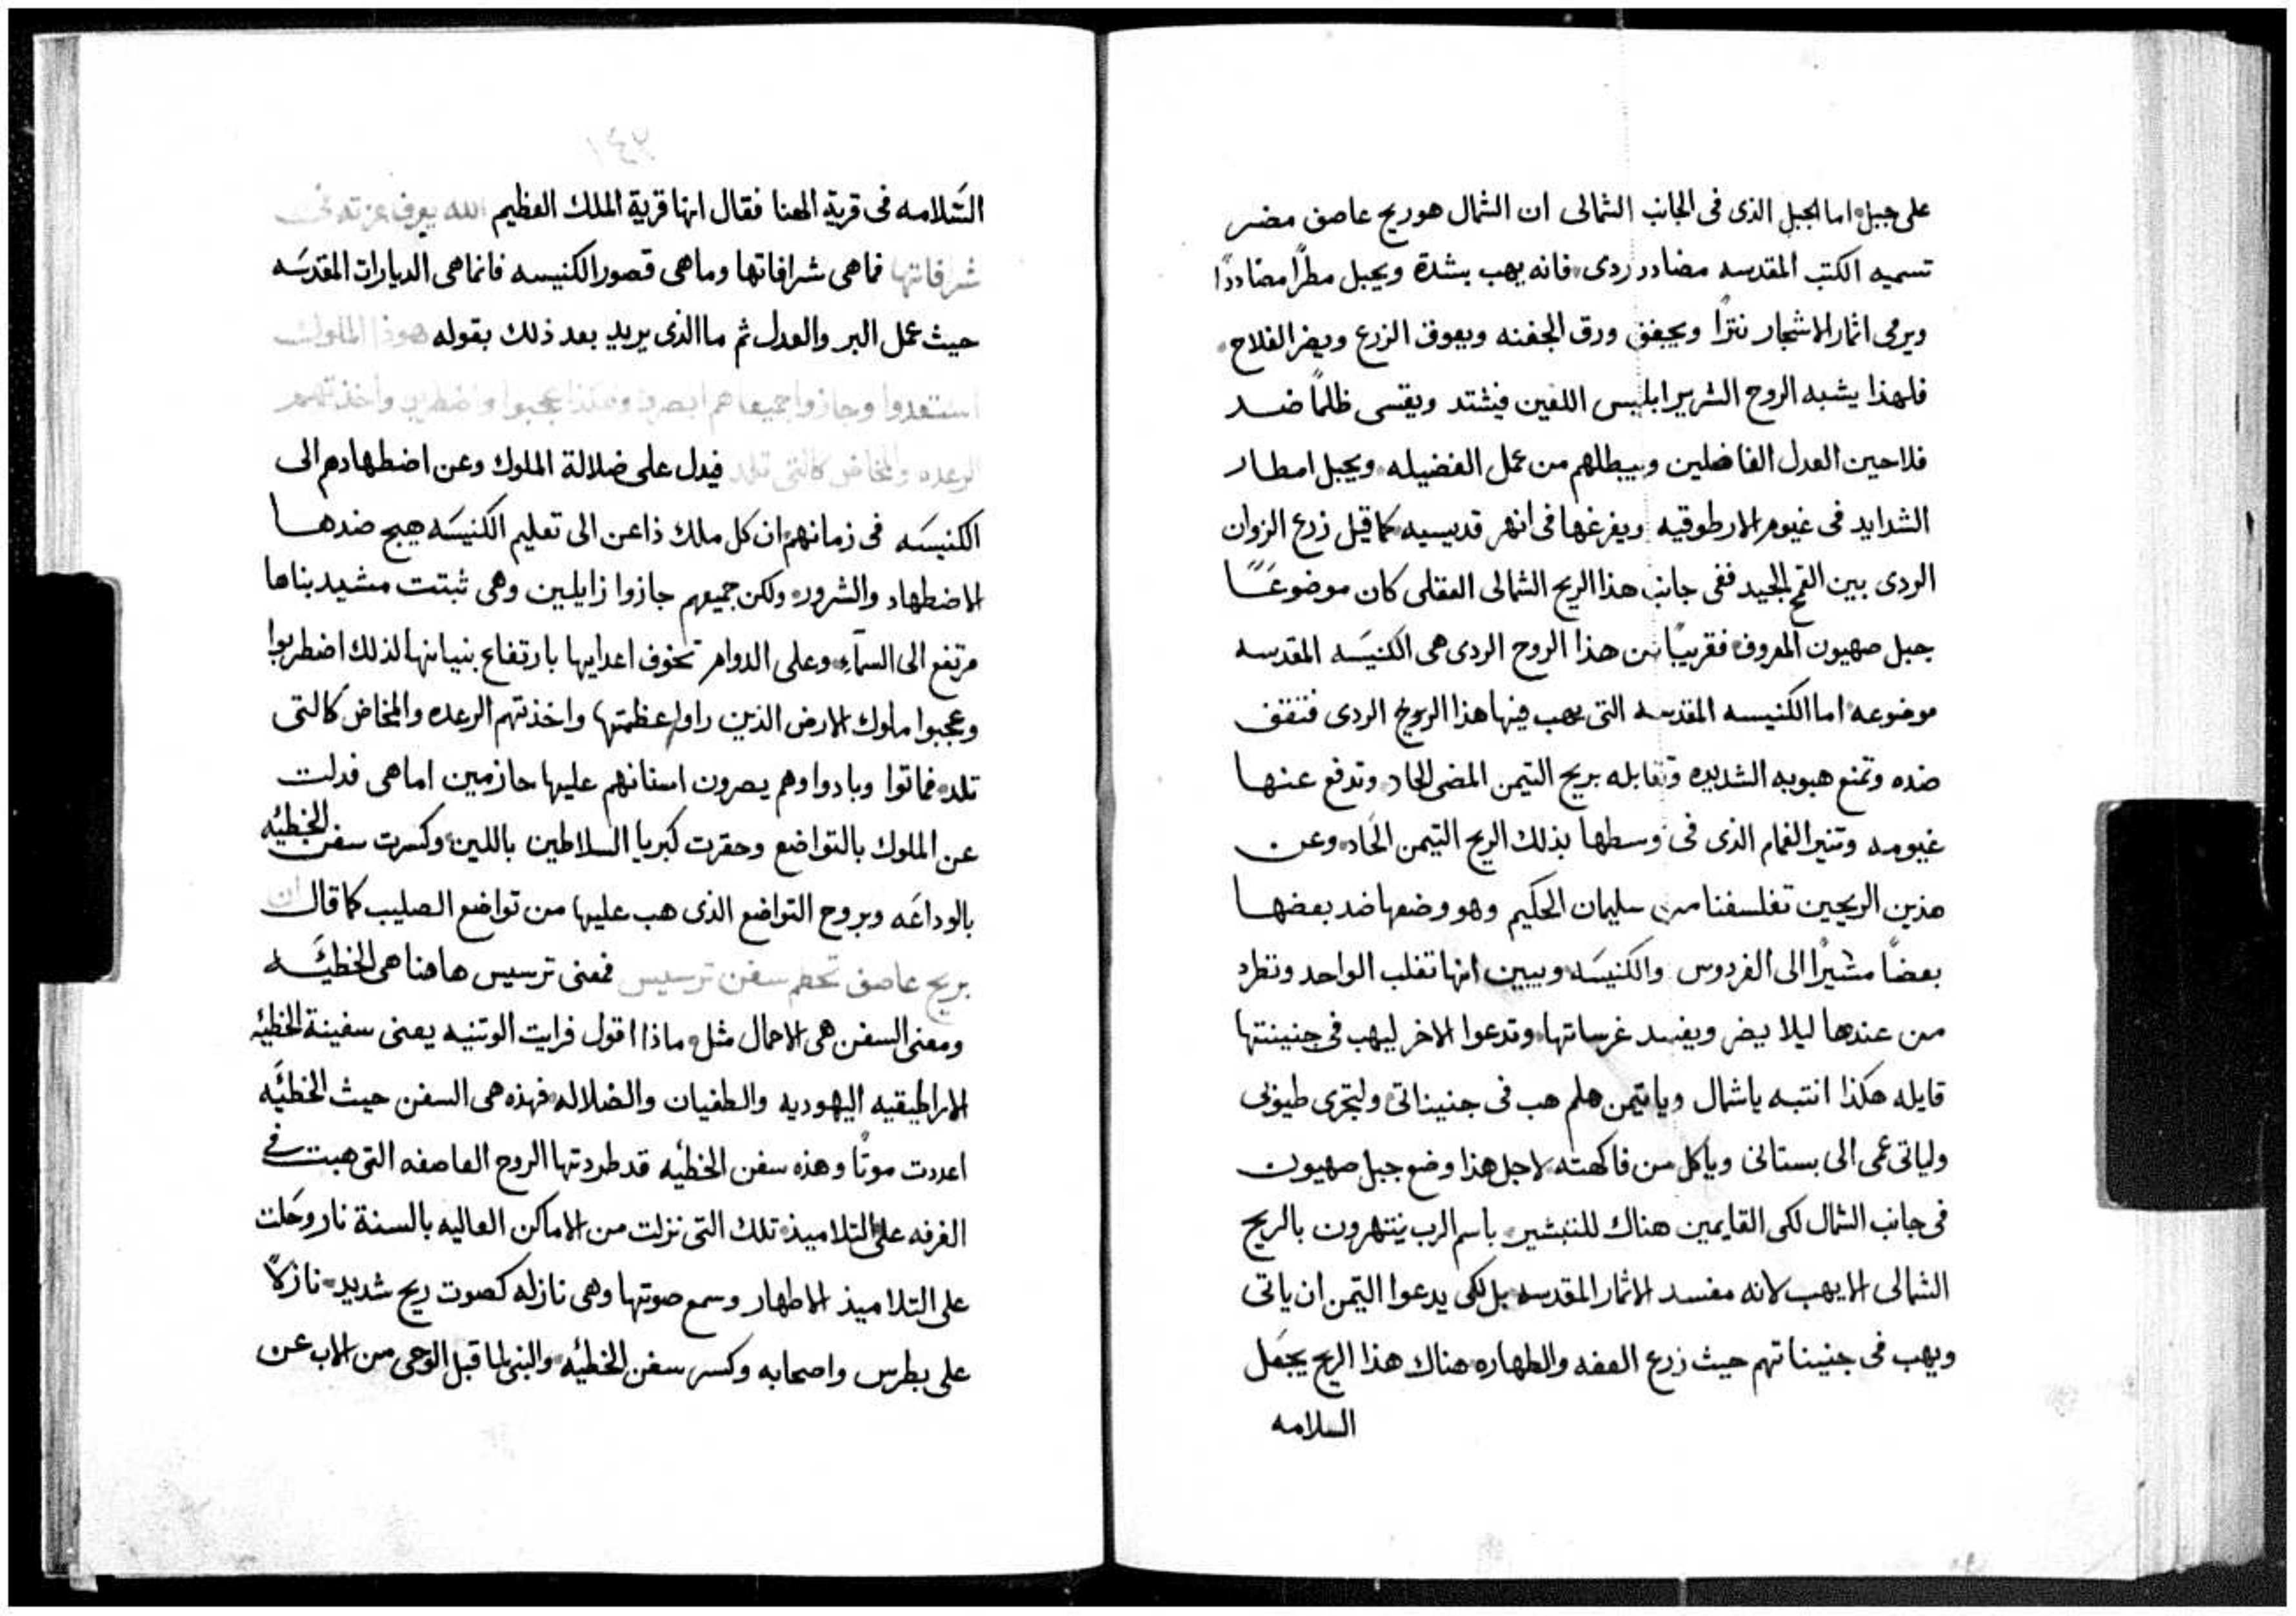 على جبل اما الجبل الذى فى الجانب الشمالى ان الشمال هو ريح عاصف مضر
تسميه الكتب المقدسه مضادد ردى فانه يهب بشدة ويجبل مطرًا مضاددًا
ويرمى اثمار الاشجار نترًا ويجفف ورق الجفنه ويعوق الزرع ويضر الفلاح
فلهذا يشبه الروح الشرير ابليس اللعين فيشتد ويقسى ظلمًا ضد
فلاحين العدل الفاضلين ويبطلهم من عمل الفضيله ويجبل امطار
الشدايد فى غيوم الارطوقيه ويفرغها فى انهر قديسيه كما قيل زرع الزوان
الردى بين القمح الجيد ففى جانب هذا الريح الشمالى العقلى كان موضوعًا
جبل صهيون المعروف فقريبًا من هذا الروح الردى هى الكنيسه المقدسه
موضوعه اما الكنيسه المقدسه التى يهب فيها هذا الريح الردى فتقف
ضده وتمنع هبوبه الشديده وتقابله بريح التيمن المضى الحاد وتدفع عنها
غيومه وتنير الغمام الذى فى وسطها بذلك الريح التيمن الحاد وعن
هذين الريحين تفلسفنا من سليمان الحكيم وهو وضعها ضد بعضها
بعضًا مشيرًا الى الفردوس والكنيسه ويبين انها تغلب الواحد وتطرد
من عندها ليلا يضر ويفسد غرساتها وتدعوا الاخر ليهب فى جنينتها
قايله هكذا انتبه ياشمال وياتيمن هلم هب فى جنيناتى ولتجرى طيوبى
ولياتى عمى الى بستانى وياكل من فاكهته لاجل هذا وضع جبل صهيون
فى جانب الشمال لكى القايمين هناك للتبشير باسم الرب ينتهرون بالريح
الشمالى الا يهب لانه مفسد الاثمار المقدسه بل لكى يدعوا التيمن ان ياتى
ويهب فى جنيناتهم حيث زرع العفه والطهاره هناك هذا الريح يجعل
السلامه
٢٤١
السلامه فى قرية الهنا فقال انها قرية الملك العظيم الله يعرف عزته فى
شرفاتها فما هى شرافاتها وما هى قصور الكنيسه فانما هى الديارات المقدسه
حيث عمل البر والعدل ثم ما الذى يريد بعد ذلك بقوله هوذا الملوك
استعدوا وجازوا جميعا هم ابصروا وهكذا عجبوا واضطربوا واخذتهم
الرعده والمخاض كالتى تلد فيدل على ضلالة الملوك وعن اضطهادهم الى
الكنيسه فى زمانهم ان كل ملك ذاعن الى تعليم الكنيسه هيج ضدها
الاضطهاد والشرور ولكن جميعهم جازوا زايلين وهى ثبتت مشيد بناها
مرتفع الى السماء وعلى الدوام تخوف اعدايها بارتفاع بنيانها لذلك اضطربوا
وعجبوا ملوك الارض الذين راوا عظمتها واخذتهم الرعده والمخاض كالتى
تلد فماتوا وبادوا وهم يصرون اسنانهم عليها حازمين اما هى فدلت
عن الملوك بالتواضع وحقرت كبريا السلاطين باللين وكسرت سفن الخطئيه
بالوداعه وبروح التواضع الذى هب عليها من تواضع الصليب كما قال ان
بريح عاصف تحطم سفن ترسيس فمعنى ترسيس هاهنا هى الخطئيه
ومعنى السفن هى الاحمال مثل ماذا اقول فرايت الوتنيه يعنى سفينة الخطيه
الاراطيقيه اليهوديه والطغيان والضلاله فهذه هى السفن حيث الخطئيه
اعددت موتًا وهذه سفن الخطئيه قد طردتها الروح العاصفه التى هبت فى
الغرفه على التلاميذ تلك التى نزلت من الاماكن العاليه بالسنة نار وحلت
على التلاميذ الاطهار وسمع صوتها وهى نازله كصوت ريح شديد نازلاً
على بطرس واصحابه وكسر سفن الخطئيه والنبى لما قبل الوحى من الاب عن